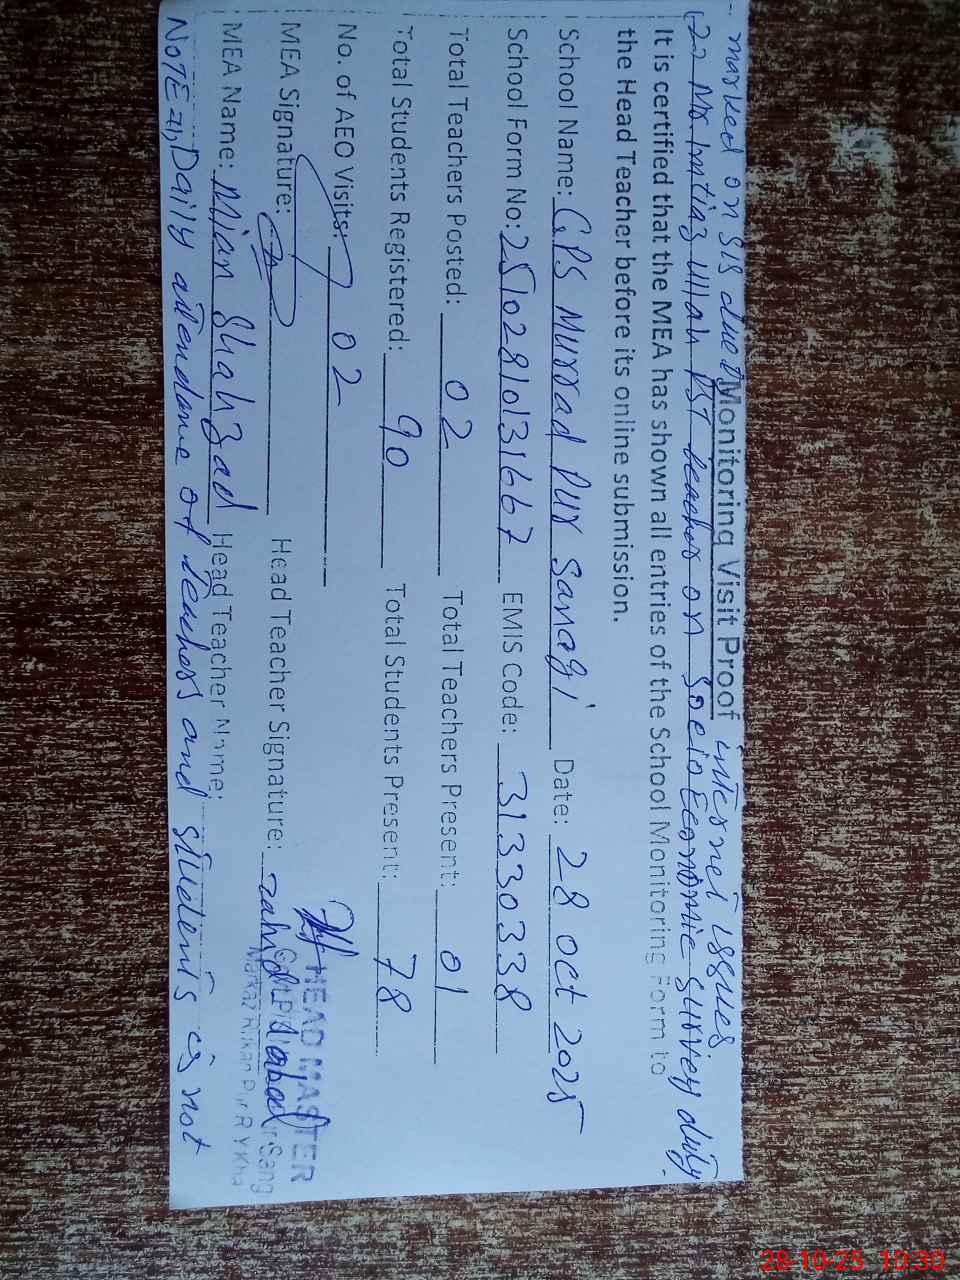 marked on SIS due to internet issues.
(2) Mr Imtiaz Ullah PST teacher on Socio Economic Survey duty.
Monitoring Visit Proof
It is certified that the MEA has shown all entries of the School Monitoring Form to
the Head Teacher before its online submission.
School Name: GPS Murrad Pur Sanagi Date: 28 Oct 2025
School Form No: 2510281013166 7 EMIS Code: 31330338
Total Teachers Posted: 02 Total Teachers Present: 01
Total Students Registered: 90 Total Students Present: 78
No. of AEO Visits: 02
MEA Signature: Head Teacher Signature:
HEAD MASTER
MEA Name: Mian Shahzad Head Teacher Name:
NOTE =1, Daily attendance of teachers and students is not
28-10-25 10:30